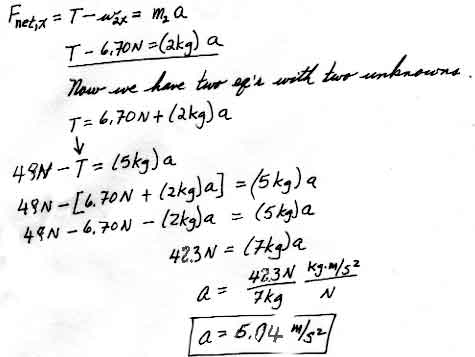 Fnet,x = T - w2x = m2 a
T - 6.70N = (2kg) a
Now we have two eq's with two unknowns.
T = 6.70N + (2kg) a
↓
49N - T = (5kg) a
49N - [6.70N + (2kg)a] = (5kg) a
49N - 6.70N - (2kg)a = (5kg) a
42.3N = (7kg) a
a = 42.3N/7kg kg·m/s²/N
a = 6.04 m/s²